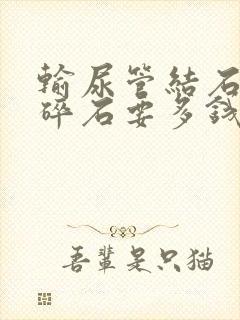 輸尿管結石
碎石要多錢
吾輩是只猫